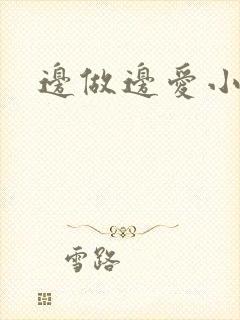 邊做邊愛小
雪路